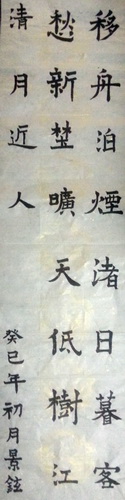 移舟泊煙渚日暮客
愁新埜曠天低樹江
清月近人
癸巳年初月景鉉